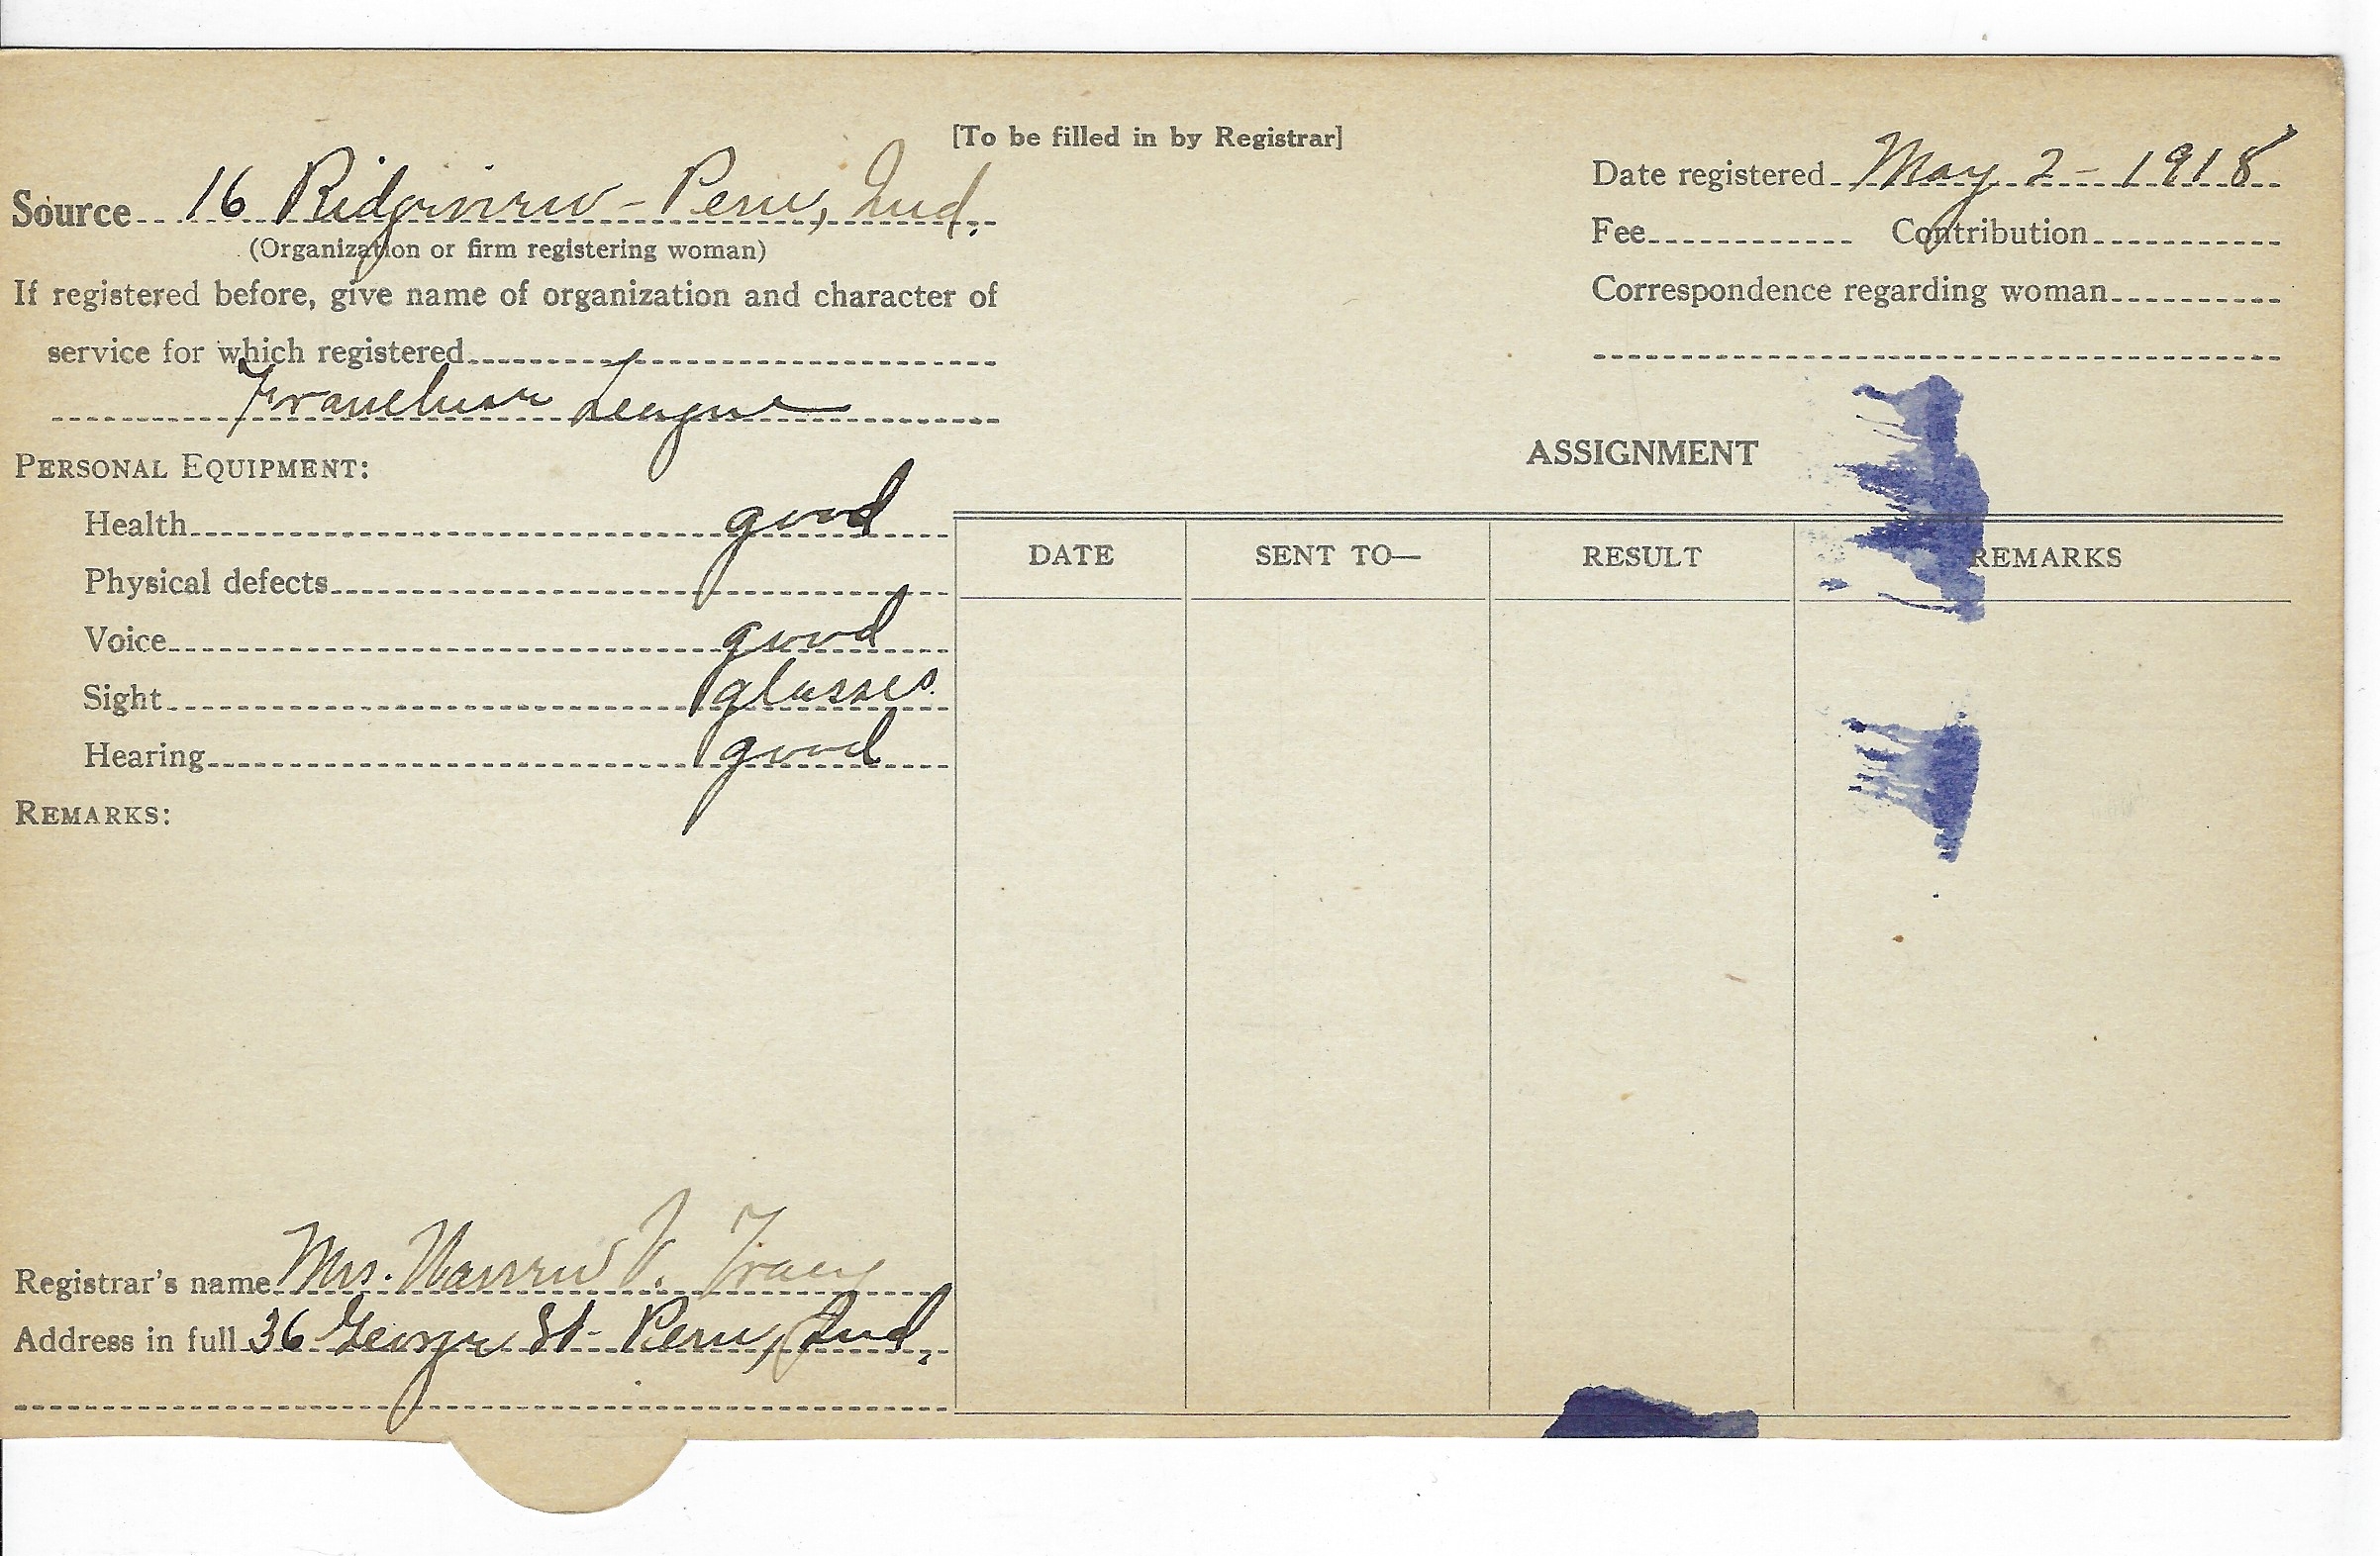 [To be filled in by Registrar]
Source 16 Ridgeview - Peru, Ind.
(Organization or firm registering woman)
If registered before, give name of organization and character of
service for which registered
Franchise League
PERSONAL EQUIPMENT:
Health good
Physical defects
Voice good
Sight glasses
Hearing good
REMARKS:
Registrar's name Mrs. Warren V. Tracy
Address in full 36 George St - Peru, Ind.
Date registered May 2 - 1918
Fee Contribution
Correspondence regarding woman
ASSIGNMENT
DATE SENT TO— RESULT REMARKS